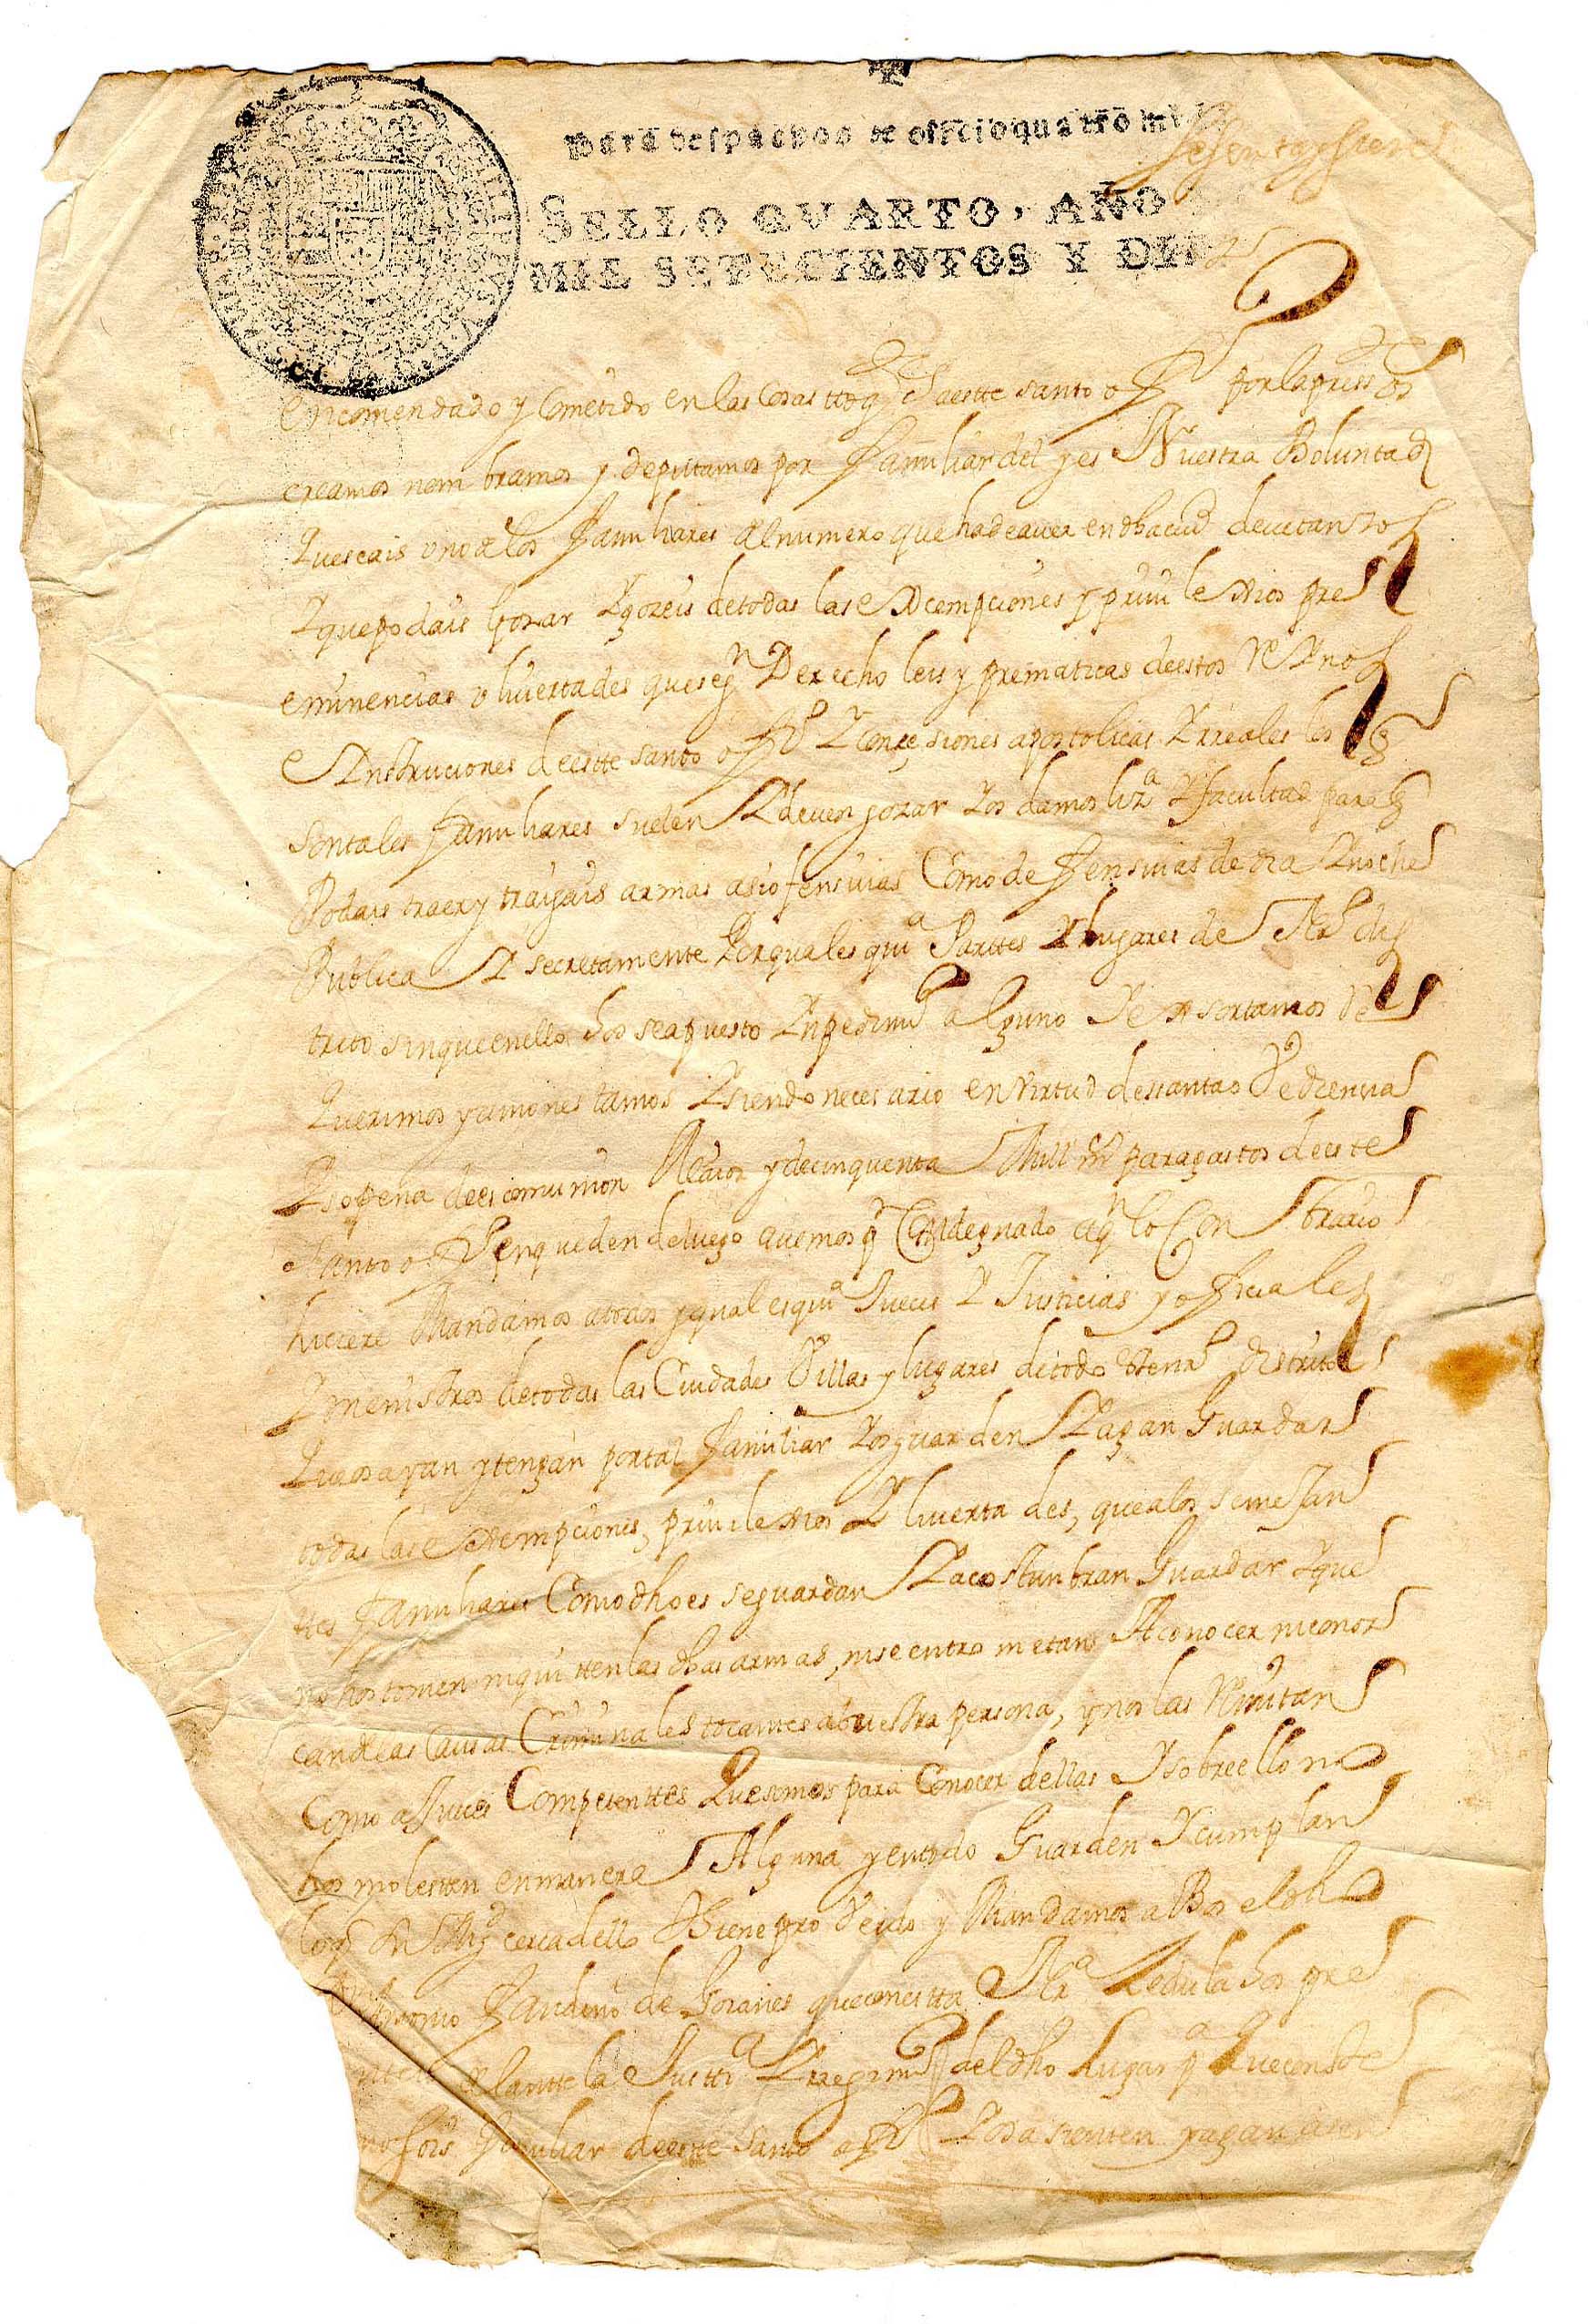 Para despachos de officio quatro mrs
Sesenta y siete
SELLO QVARTO, AÑO
MIL SETECIENTOS Y DIE
encomendado y Cometido en las Cosas ttoq. a estte santo off.o por la press.te os
creamos nombramos y deputamos por Familiar del y es Nuestra Boluntad
Que seais vno de los Familiares del numero que ha de auer en dha ciud de
Y que podais Gozar Y gozeis de todas las exempciones y priuilexios pre
eminencias y liuertades que seg.n Derecho leis y prematicas destos ReYnos
e Ynstruciones de estte santo off.o Y Conzesiones apostolicas Y rreales los q
son tales Familiares suelen Y deuen gozar Y os damos liz.a Y facultad para q
Podais traer y traigais armas asi ofensiuias Como defensiuias de dia Y noche
Publica Y secretamente Por qualesqui.a Partes Y lugares de Nro dis
trito sin que en ello hos sea puesto Ynpedim.o alguno Y exsortamos Re
Querimos y amonestamos Y siendo necesario en Virtud de santa oVediencia
Y so pena de escomunion Maior y de cinquenta Mill mrs para gastos de este
santo off.o en que den de luego auemos p.r Condegnado al q lo Contrario
hiciere Mandamos a todos y qualesqui.a Jueces Y Justicias y oficiales
Y menistros de todas las Ciudades Villas y lugares de todo este nro distrito
Que os ayan y tengan por tal Familiar Y os guarden Y agan Guardar
todas las exempciones, priuilexios Y liuertades, que a los semejan
ttes Familiares Como dho es se guardan Y acostunbran Guardar Y que
no hos tomen ni quitten las dhas armas, ni se entrometan A conocer ni conoz
can de las Causas Criminales tocantes a buestra persona, y nos las Remitan
Como a Jueces Competenttes Que somos para Conocer dellas Y sobre ello no
hos molesten en manera Alguna y en todo Guarden Y cumplan
lo q su Mg.d cerca dello Tiene proVeido y Mandamos a Bos el dho
Antonio Fandiño de Goianes que con estta Nra Cedula hos pre
delantte la Justt.a Y regim.to del dho Lugar p.a Que conste
sois Familiar de estte santo off.o Y os asienten y agan asen